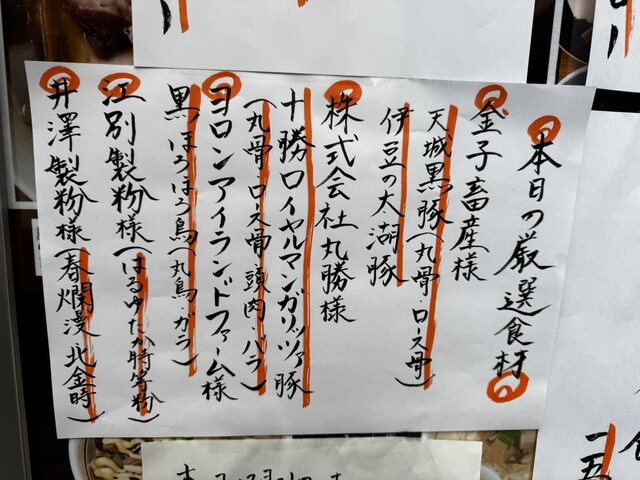 本日の厳選食材
金子畜産様
天城黒豚(丸骨・ロース骨)
伊豆の太湖豚
株式会社丸勝様
十勝ロイヤルマンガリッツァ豚
(丸骨・ロース骨・頭肉・バラ)
ヨロンアイランドファーム様
黒ほろほろ鳥(丸鳥・ガラ)
江別製粉様(はるゆたか特等粉)
井澤製粉様(春爛漫・北金時)